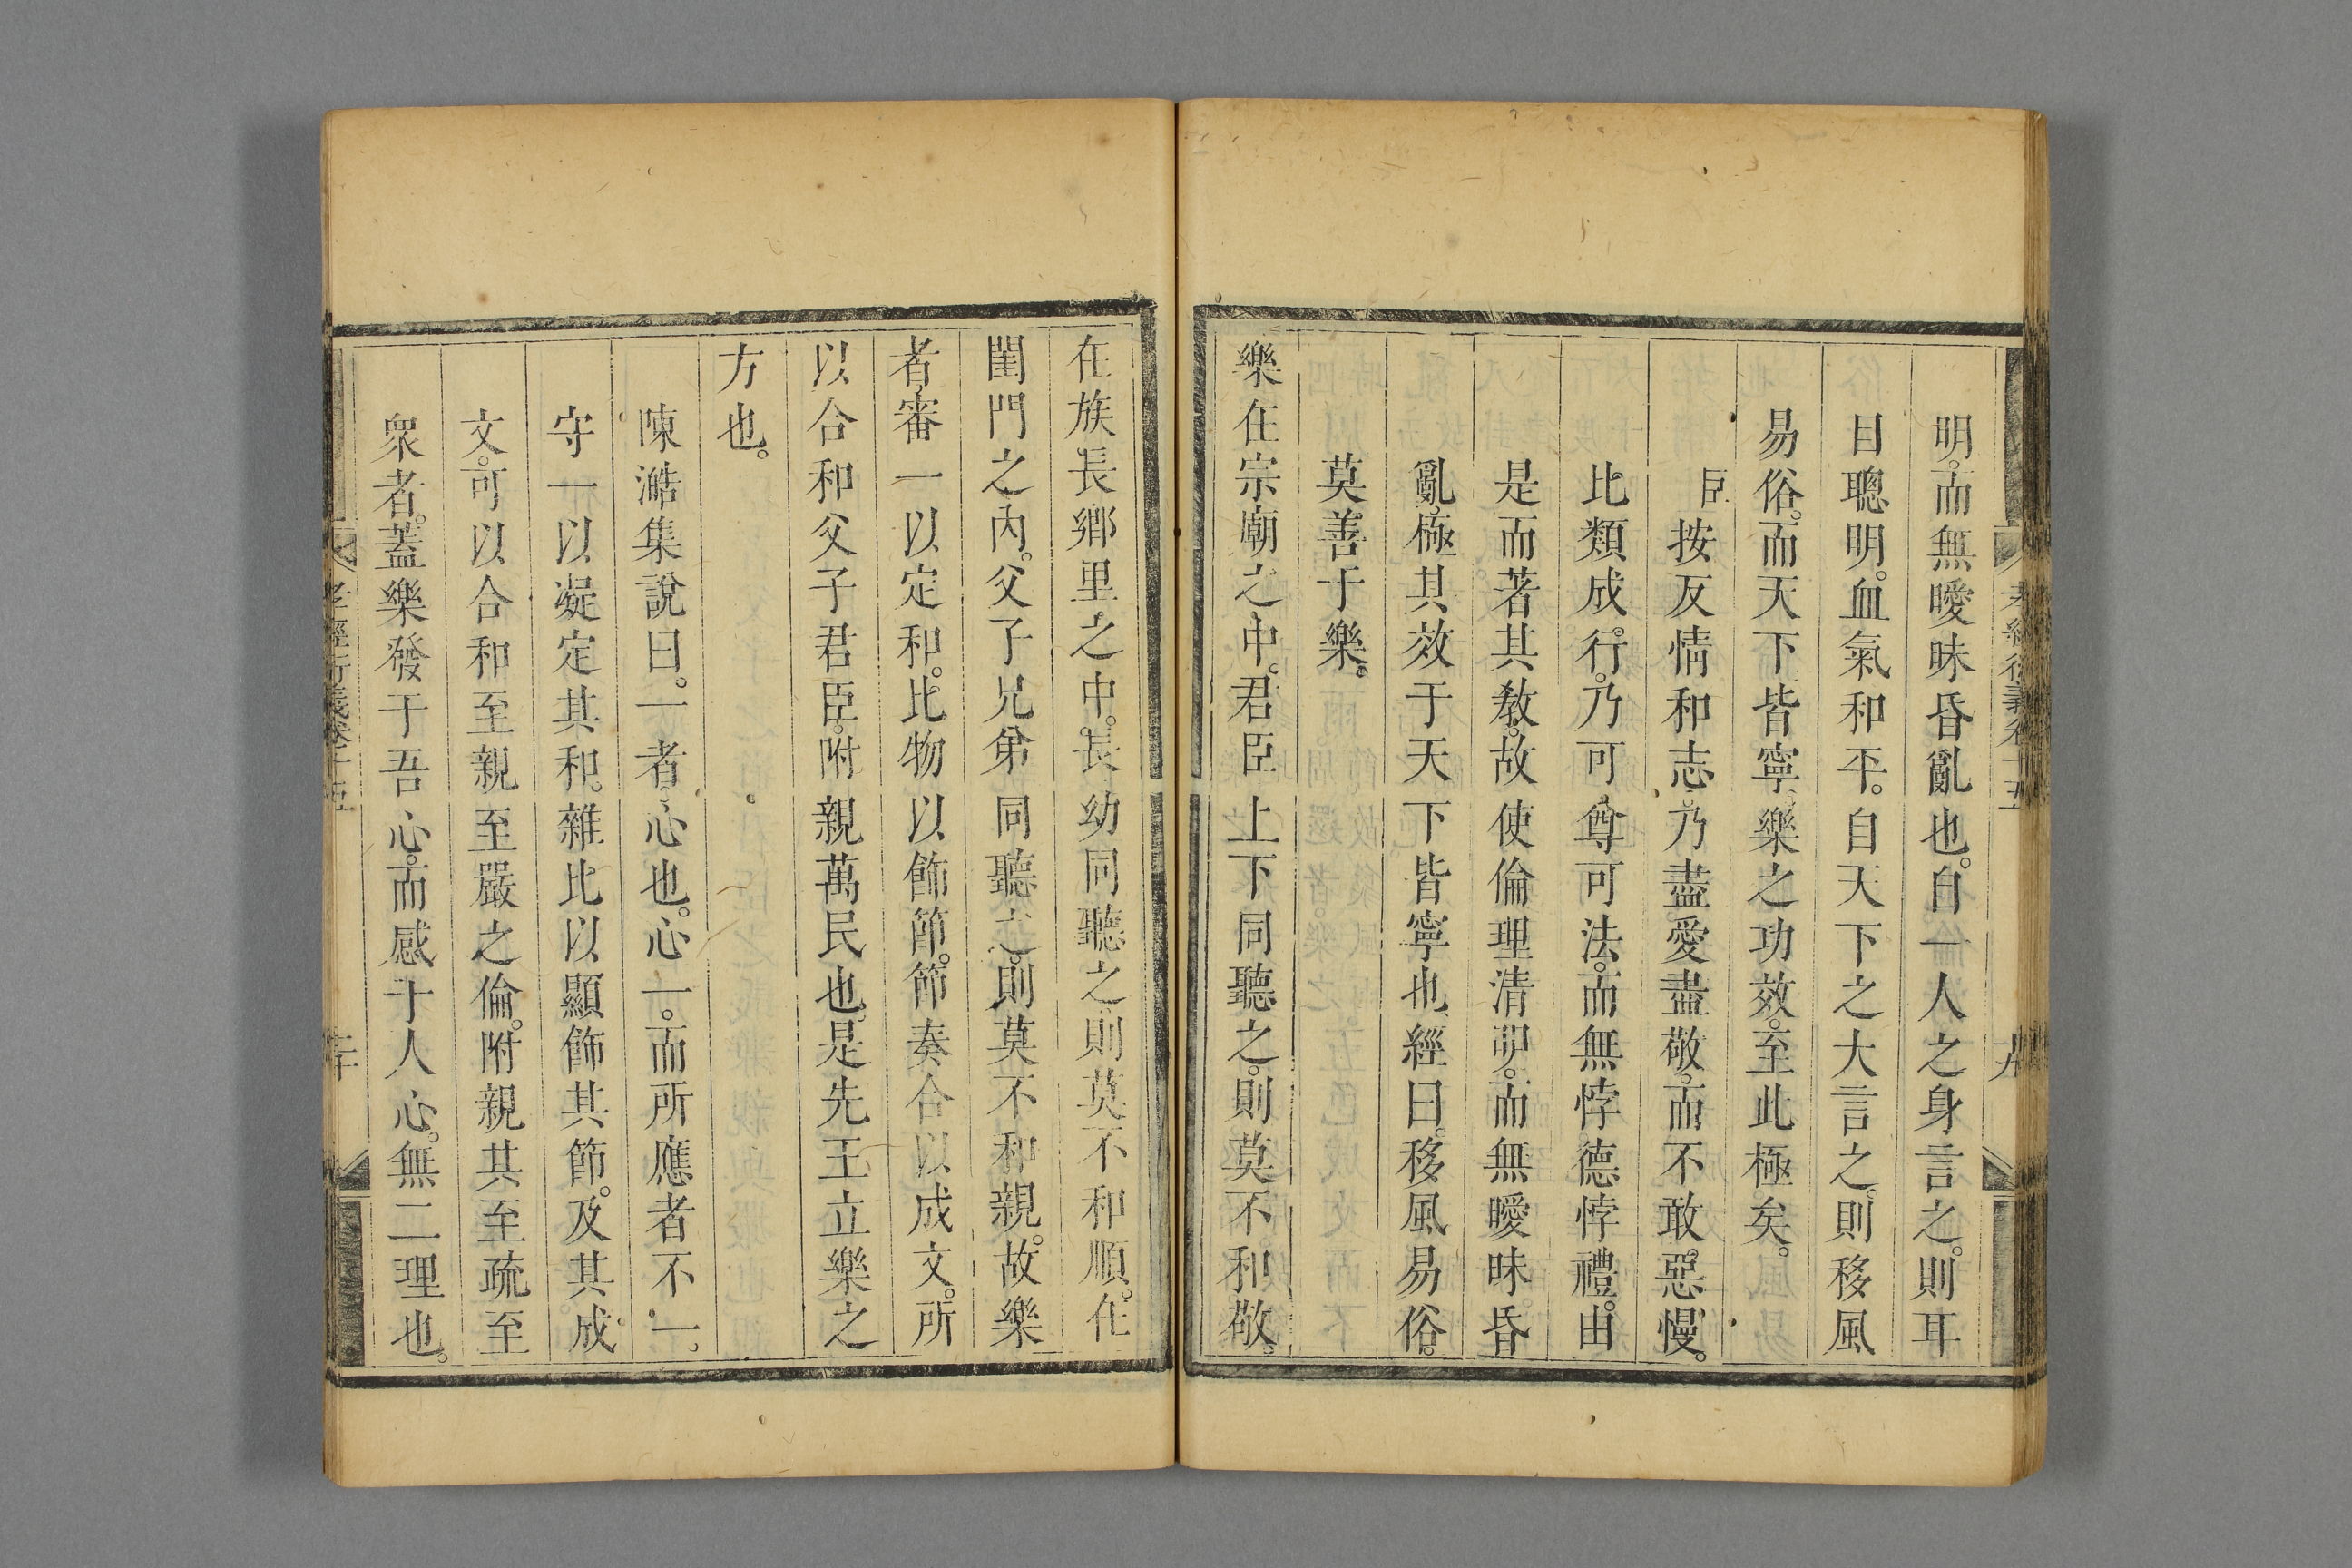 明。而無曖昧昏亂也。自一人之身言之。則耳
目聰明。血氣和平。自天下之大言之。則移風
易俗。而天下皆寧。樂之功效。至此極矣。
臣按反情和志。乃盡愛盡敬。而不敢惡慢。
比類成行。乃可尊可法。而無悖德悖禮。由
是而著其教。故使倫理清明。而無曖昧昏
亂。極其效于天下皆寧也。經曰。移風易俗。
莫善于樂。
樂在宗廟之中。君臣上下同聽之。則莫不和敬。
在族長鄉里之中。長幼同聽之。則莫不和順。在
閨門之內。父子兄弟同聽之。則莫不和親。故樂
者。審一以定和。比物以飾節。節奏合以成文。所
以合和父子君臣。附親萬民也。是先王立樂之
方也。
陳澔集說曰。一者心也。心一。而所應者不一。
守一以凝定其和。雜比以顯飾其節。及其成
文。可以合和至親至嚴之倫。附親其至疏至
衆者。蓋樂發于吾心。而感于人心。無二理也。
孝經衍義卷十五